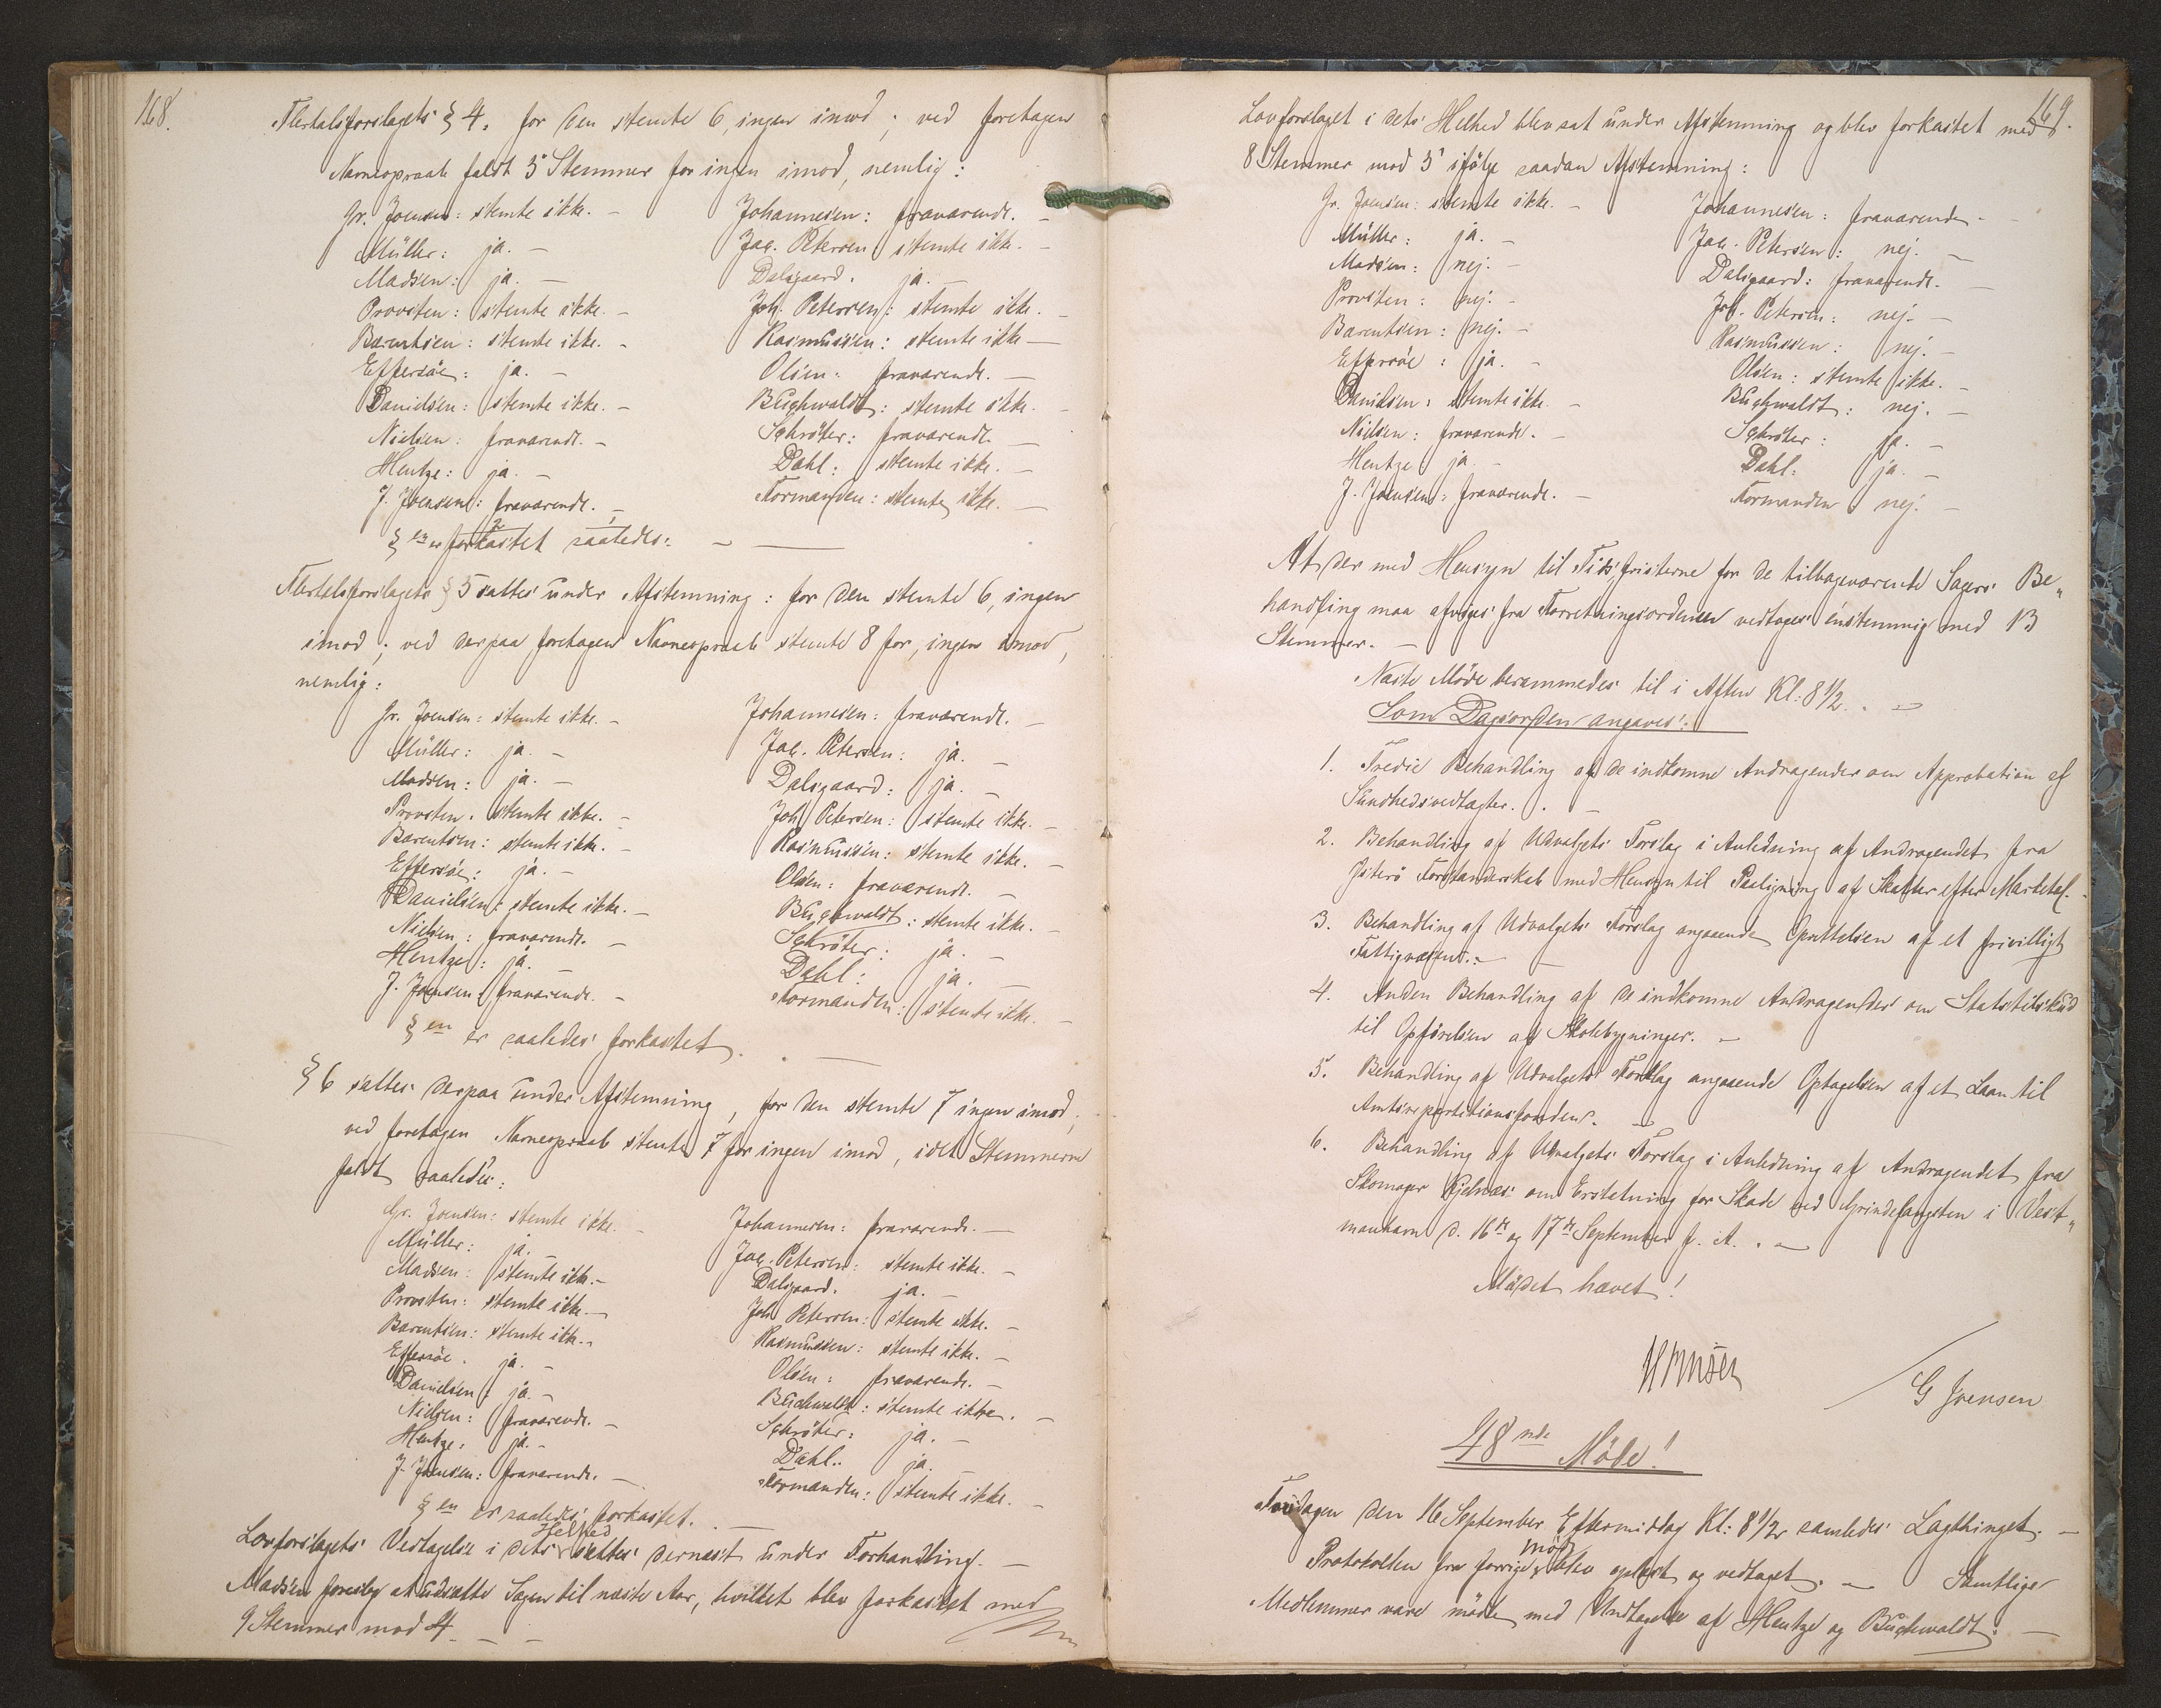 168.
Flertalsforslagets § 4. for den stemte 6, ingen imod; ved foretagen
Navneopraab faldt 5 Stemmer for ingen imod, nemlig:
Gr. Joensen: stemte ikke. –
Müller: ja. –
Madsen: ja. –
Provsten: stemte ikke. –
Barentsen: stemte ikke. –
Effersöe: ja. –
Danielsen: stemte ikke. –
Nielsen: fraværende. –
Hentze: ja. –
J. Joensen: fraværende. –
Johannesen: fraværende. –
Jac. Petersen stemte ikke. –
Dalsgaard. ja. –
Joh. Petersen: stemte ikke. –
Rasmussen: stemte ikke –
Olsen: fraværende. –
Buchwaldt: stemte ikke. –
Schröter: fraværende. –
Dahl: stemte ikke. –
Formanden: stemte ikke. –
§ en er forkastet saaledes: –
Flertalsforslagets § 5 sattes under Afstemning: for den stemte 6, ingen
imod; ved derpaa foretagen Navneopraab stemte 8 for, ingen imod,
nemlig:
Gr. Joensen: stemte ikke. –
Müller: ja. –
Madsen: ja. –
Provsten. stemte ikke. –
Barentsen: stemte ikke. –
Effersöe: ja. –
Danielsen: stemte ikke. –
Nielsen: fraværende. –
Hentze: ja. –
J. Joensen: fraværende. –
Johannesen: fraværende. –
Jac. Petersen: ja. –
Dalsgaard: ja. –
Joh. Petersen: stemte ikke. –
Rasmussen: stemte ikke. –
Olsen: fraværende. –
Buchwaldt: stemte ikke. –
Schröter: ja. –
Dahl: ja. –
Formanden: stemte ikke. –
§ en er saaledes forkastet. –
§ 6 sattes derpaa under Afstemning, for den stemte 7 ingen imod;
ved foretagen Navneopraab stemte 7 for ingen imod, idet Stemmerne
faldt saaledes:
Gr. Joensen: stemte ikke. –
Müller: ja. –
Madsen: stemte ikke. –
Provsten: stemte ikke. –
Barentsen: stemte ikke. –
Effersöe. ja. –
Danielsen: ja. –
Nielsen: fraværende. –
Hentze. ja. –
J. Joensen: fraværende. –
Johannesen: fraværende. –
Jac. Petersen: stemte ikke. –
Dalsgaard. ja. –
Joh Petersen: stemte ikke. –
Rasmussen: stemte ikke. –
Olsen: fraværende. –
Buchwaldt: stemte ikke. –
Schröter: ja. –
Dahl.. ja. –
Formanden: stemte ikke. –
§ en er saaledes forkastet. –
Lovforslagets Vedtagelse i dets Helhed sattes dernæst under Forhandling. –
Madsen foreslog at udsætte Sagen til næste Aar, hvilket blev forkastet med
9 Stemmer mod 4. –
169.
Lovforslaget i dets Helhed blev sat under Afstemning og blev forkastet med
8 Stemmer mod 5 ifölge saadan Afstemning:
Gr. Joensen: stemte ikke. –
Müller: ja. –
Madsen: nej. –
Provsten: nej. –
Barentsen: nej. –
Effersöe: ja. –
Danielsen: stemte ikke. –
Nielsen: fraværende. –
Hentze ja. –
J. Joensen: fraværende. –
Johannesen: fraværende –
Jac. Petersen: nej. –
Dalsgaard: fraværende. –
Joh. Petersen: nej. –
Rasmussen: nej. –
Olsen: stemte ikke. –
Buchwaldt: nej. –
Schröter: ja. –
Dahl: ja. –
Formanden nej. –
At der med Hensyn til Tidsfristerne for de tilbageværende Sagers Be„
handling maa afviges fra Forretningsordenen vedtoges enstemmig med 13
Stemmer. –
Næste Möde berammedes til i Aften Kl: 8 1/2. –
Som Dagsorden angaves:
1. Tredie Behandling af de indkomne Andragender om Approbation af
Sundhedsvedtægter. –
2. Behandling af Udvalgets Forslag i Anledning af Andragendet fra
Österö Forstanderskab med Hensyn til Paaligning af Skatter efter Marketal. –
3. Behandling af Udvalgets Forslag angaaende Oprettelsen af et frivilligt
Fattigvæsen. –
4. Anden Behandling af de indkomne Andragender om Statstilskud
til Opförelsen af Skolebygninger. –
5. Behandling af Udvalgets Forslag angaaende Optagelsen af et Laan til
Amtsrepartitionsfonden. –
6. Behandling af Udvalgets Forslag i Anledning af Andragendet fra
Skomager Kjelnæs om Erstatning for Skade ved Grindefangsten i Vest„
manhavn d. 16de og 17de September f. A. –
Mödet hævet!
G Joensen
48nde Möde!
Tirsdagen den 16 September Eftermiddag Kl: 8 1/2 samledes Lagthinget. –
Protokollen fra forrige Möde blev oplæst og vedtaget. – Samtlige
Medlemmer vare mödte med Undtagelse af Hentze og Buchwaldt. –